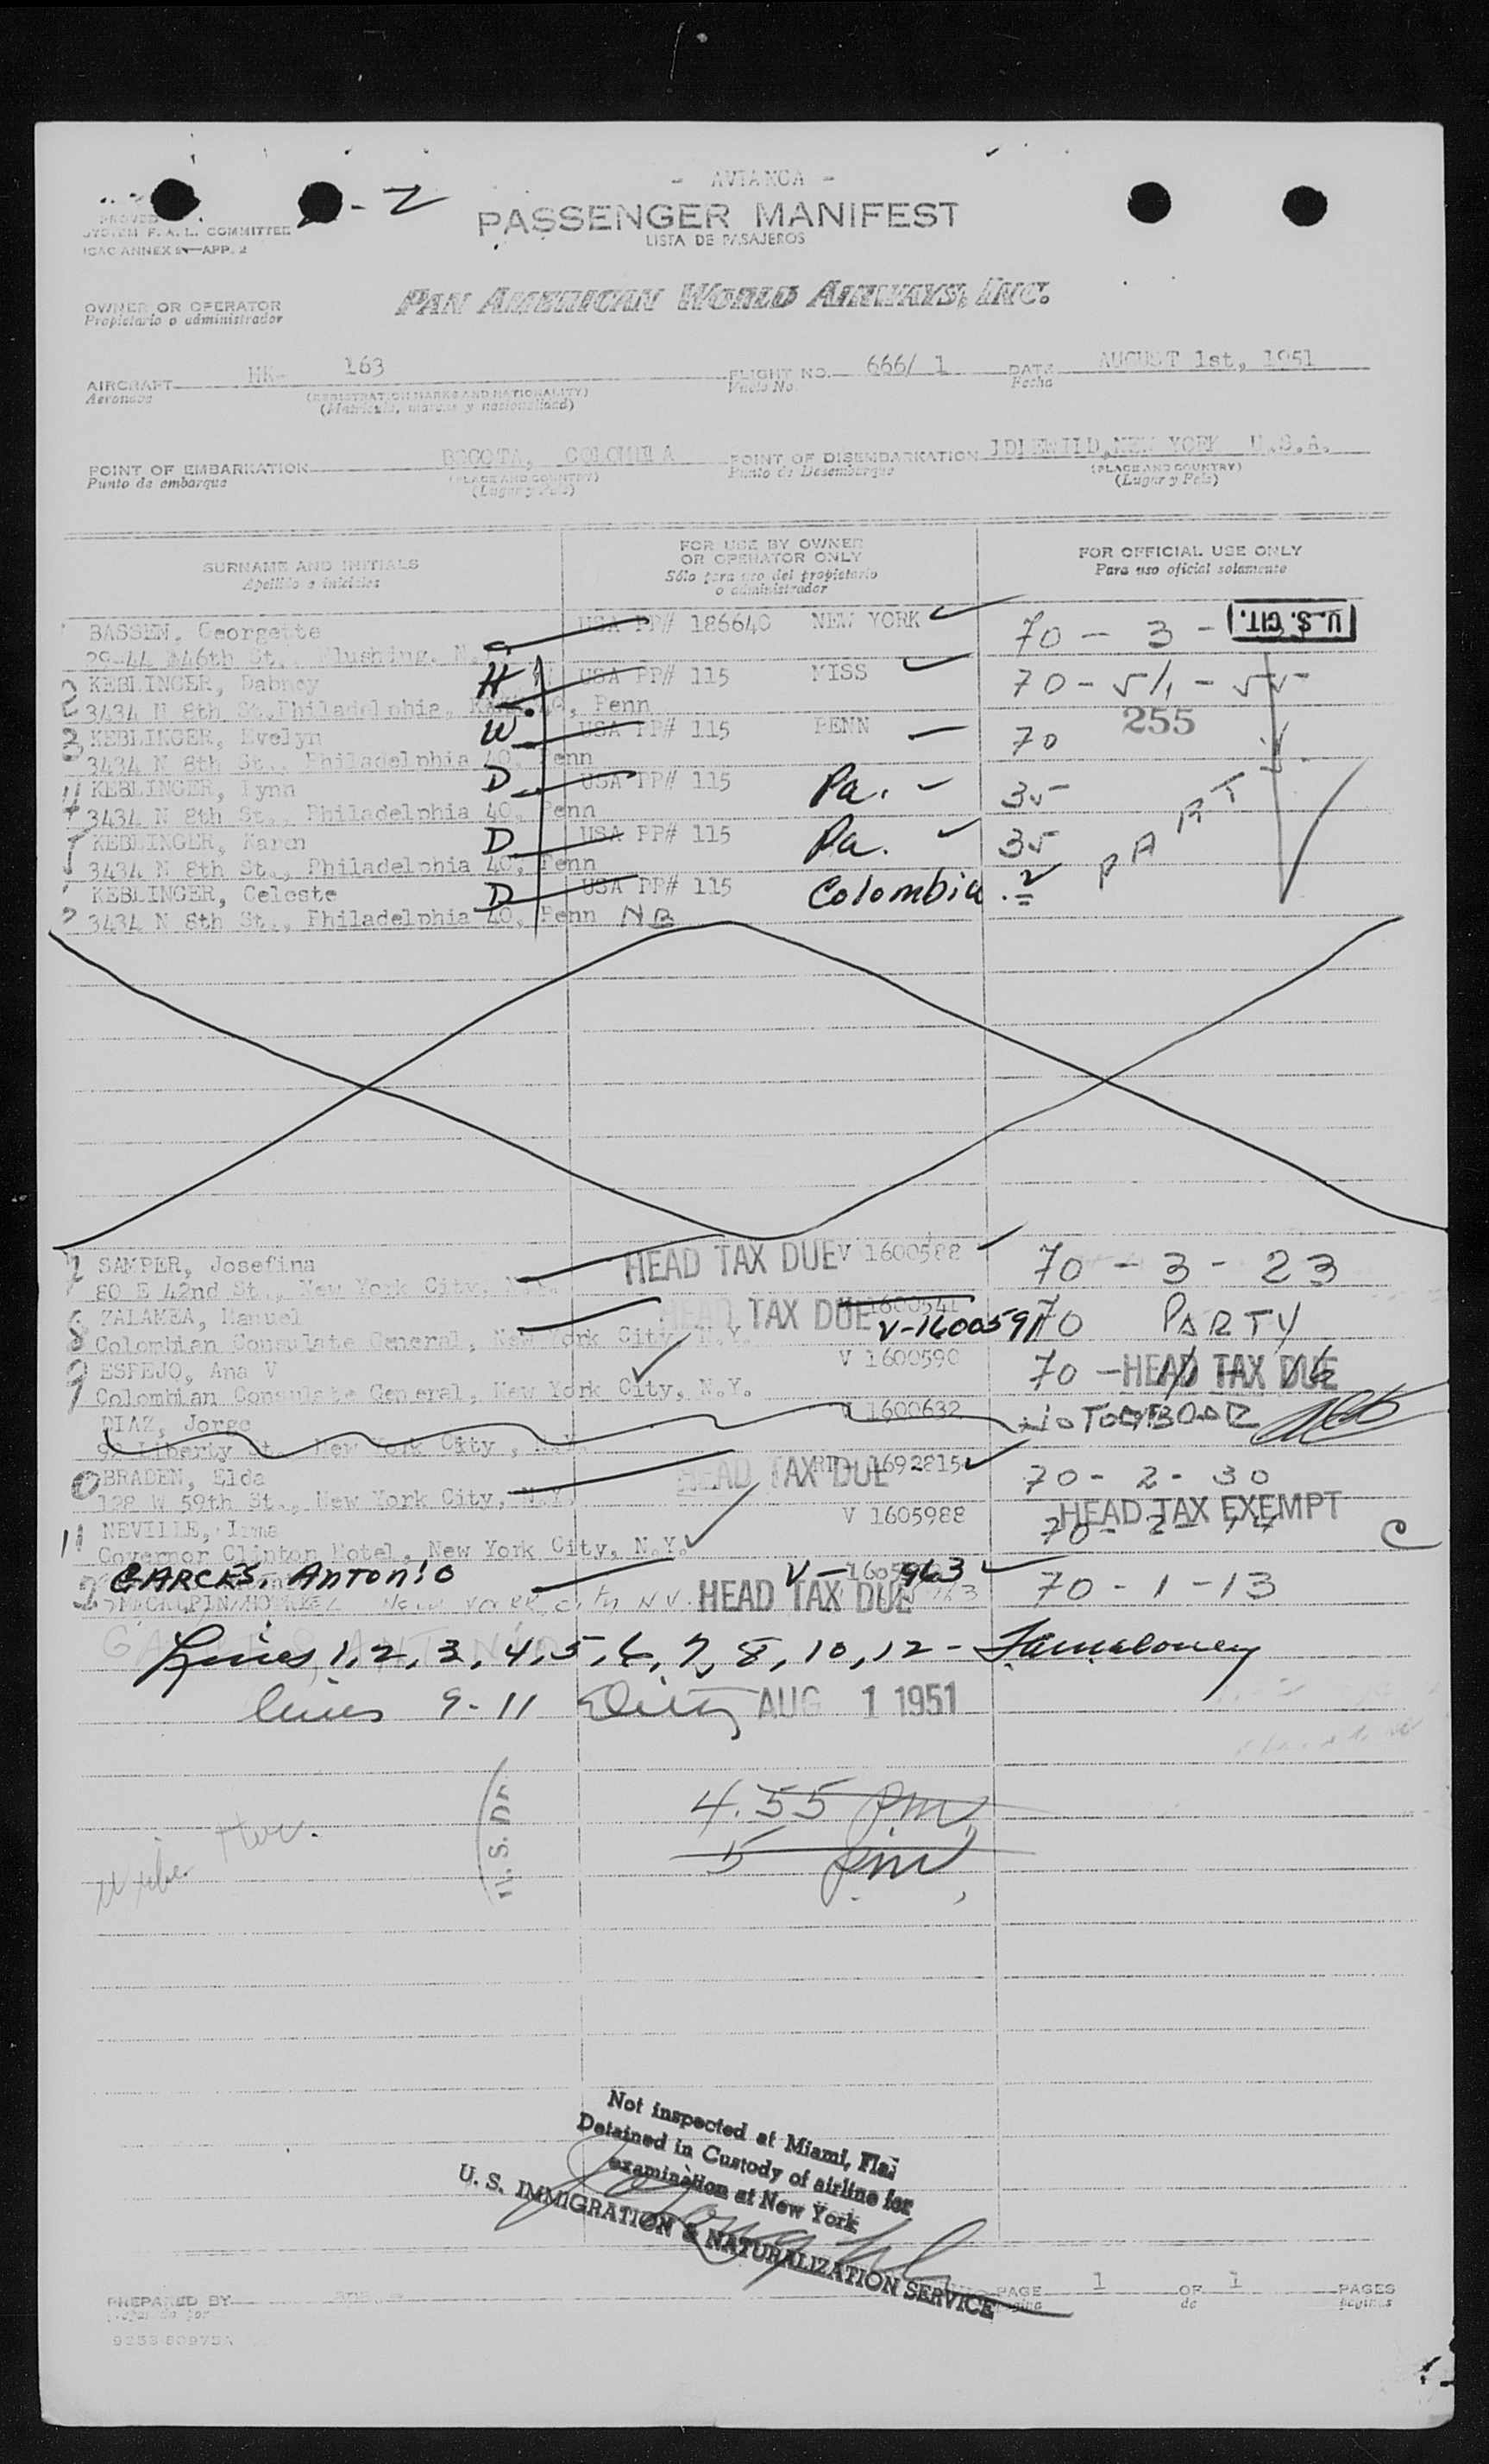 - 2
- AVIANCA -
PASSENGER MANIFEST
LISTA DE PASAJEROS
F. A. L. COMMITTEE
ICAO ANNEX 9—APP. 2
OWNER OR OPERATOR
Propietario o administrador
PAN AMERICAN WORLD AIRWAYS, INC.
AIRCRAFT HK- 163
Aeronave
(REGISTRATION MARKS AND NATIONALITY)
(Matrícula, marcas y nacionalidad)
FLIGHT NO. 666/ 1
Vuelo No
DATE AUGUST 1st, 1951
Fecha
POINT OF EMBARKATION BOGOTA, COLOMBIA
Punto de embarque
(PLACE AND COUNTRY)
(Lugar y País)
POINT OF DISEMBARKATION IDLEWILD, NEW YORK U.S.A.
Punto de Desembarque
(PLACE AND COUNTRY)
(Lugar y País)
SURNAME AND INITIALS
Apellido e iniciales
FOR USE BY OWNER
OR OPERATOR ONLY
Sólo para uso del propietario
o administrador
FOR OFFICIAL USE ONLY
Para uso oficial solamente
BASSEN, Georgette USA PP# 186640 NEW YORK 70 - 3 - U. S. CIT.
29-44 146th St., Flushing, N.
2 KEBLINGER, Dabney H USA PP# 115 MISS 70 - 5/1 - 55
3434 N 8th St., Philadelphia, 40, Penn
3 KEBLINGER, Evelyn W USA PP# 115 PENN 70 255
3434 N 8th St., Philadelphia 40, Penn
4 KEBLINGER, Lynn D USA PP# 115 Pa. 35
3434 N 8th St., Philadelphia 40, Penn
5 KEBLINGER, Karen D USA PP# 115 Pa. 35 PART
3434 N 8th St., Philadelphia 40, Penn
KEBLINGER, Celeste D USA PP# 115 Colombia
3434 N 8th St., Philadelphia 40, Penn NB
7 SAMPER, Josefina HEAD TAX DUE V 1600588 70 - 3 - 23
80 E 42nd St., New York City, N.Y.
8 ZALAMEA, Manuel HEAD TAX DUE 1600541 V-1600591 70 PARTY
Colombian Consulate General, New York City, N.Y.
9 ESPEJO, Ana V V 1600590 70 - HEAD TAX DUE
Colombian Consulate General, New York City, N.Y.
DIAZ, Jorge V 1600632 NOT ON BOARD
Liberty St. New York City, N.Y.
10 BRADEN, Elda HEAD TAX DUE 1692815 70 - 2 - 30
128 W 59th St., New York City, N.Y.
11 NEVILLE, Irma V 1605988 HEAD TAX EXEMPT 70 - 2 - 14 C
Governor Clinton Hotel, New York City, N.Y.
12 GARCES, ANTONIO V - 1605963 70 - 1 - 13
New York City N.Y. HEAD TAX DUE
Lines 1, 2, 3, 4, 5, 6, 7, 8, 10, 12 -
lines 9-11 AUG 1 1951
4.55 pm
5 pm
Not inspected at Miami, Fla.
Detained in Custody of airline for
examination at New York
U. S. IMMIGRATION & NATURALIZATION SERVICE
PREPARED BY
PAGE 1 OF 1 PAGES
página de páginas